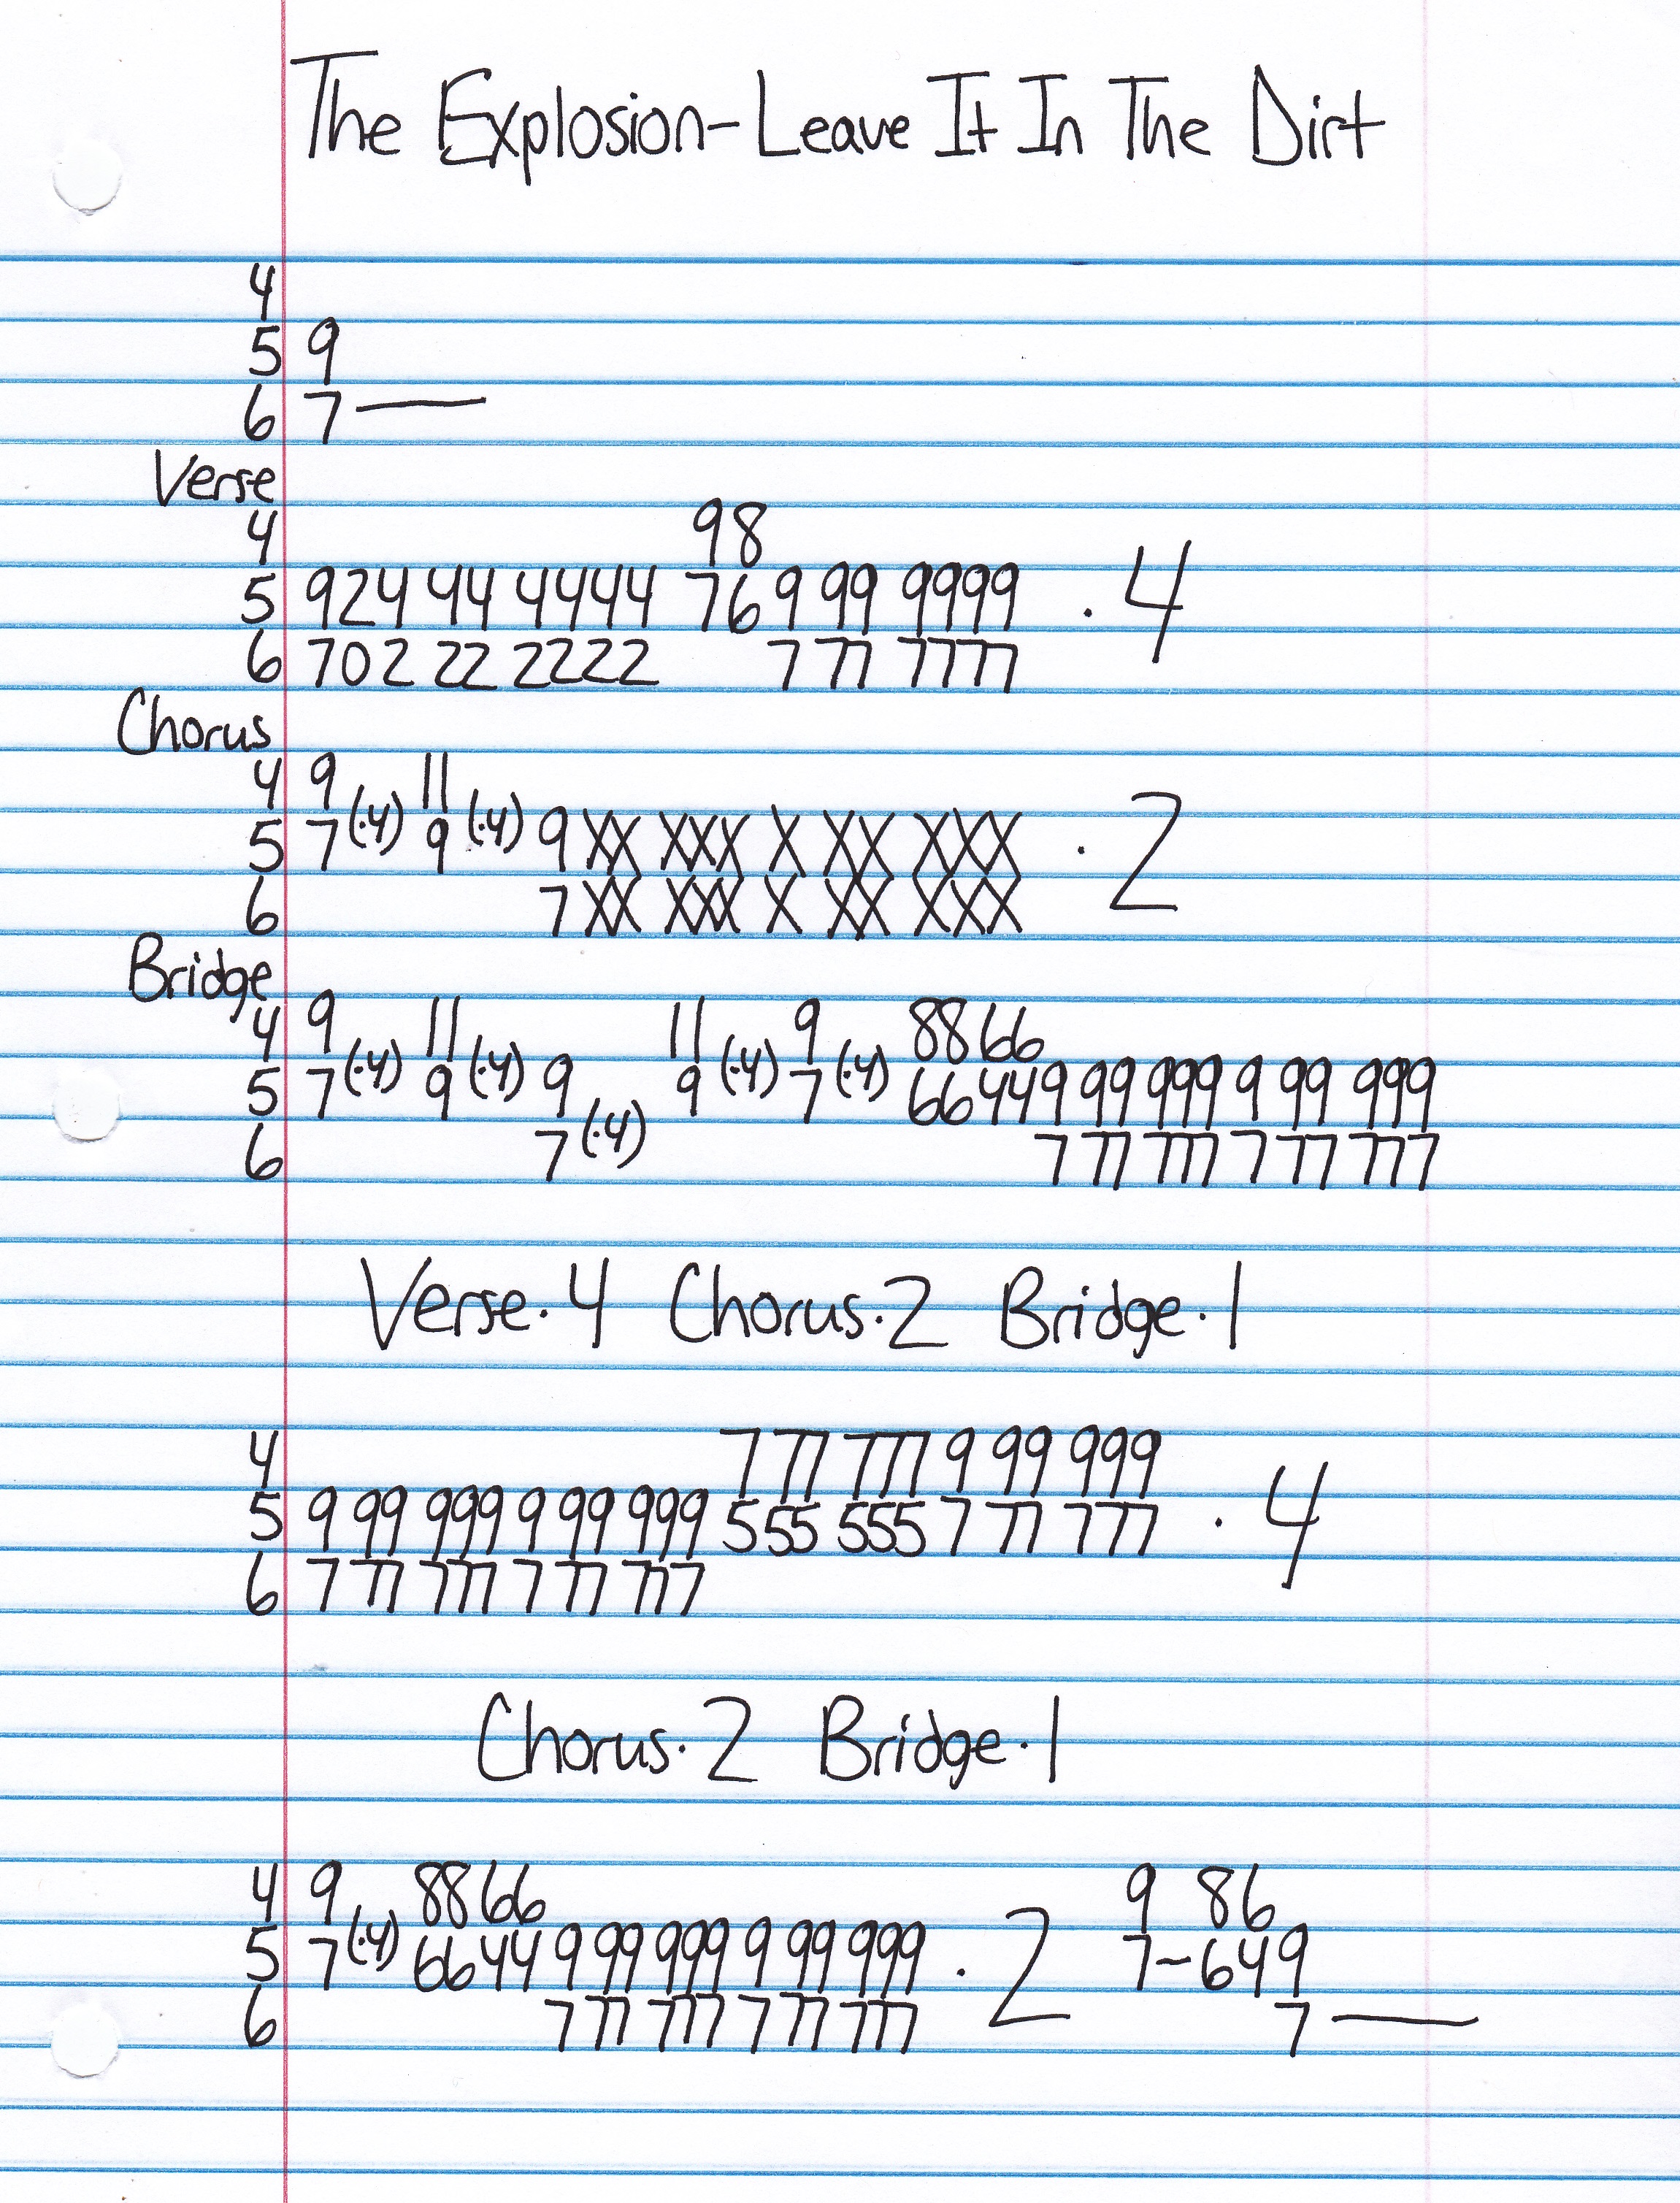 The Explosion-Leave It In The Dirt
4
5 9
6 7 —
Verse
4 98
5 924 44 4444 76 9 99 9999 · 4
6 702 22 2222 7 77 7777
Chorus
4 9 11
5 7 (·4) 9 (·4) 9 XX XXX X XX XXX · 2
6 7 XX XXX X XX XXX
Bridge
4 9 11 11 9 8866
5 7 (·4) 9 (·4) 9 9 (·4) 7 (·4) 66449 99 999 9 99 999
6 7 (·4) 7 77 777 7 77 777
Verse·4 Chorus·2 Bridge·1
4 7 77 777 9 99 999
5 9 99 999 9 99 999 5 55 555 7 77 777 · 4
6 7 77 777 7 77 777
Chorus·2 Bridge·1
4 9 8866 9 86
5 7 (·4) 6644 9 99 999 9 99 999 · 2 7-649
6 7 77 777 7 77 777 7 —